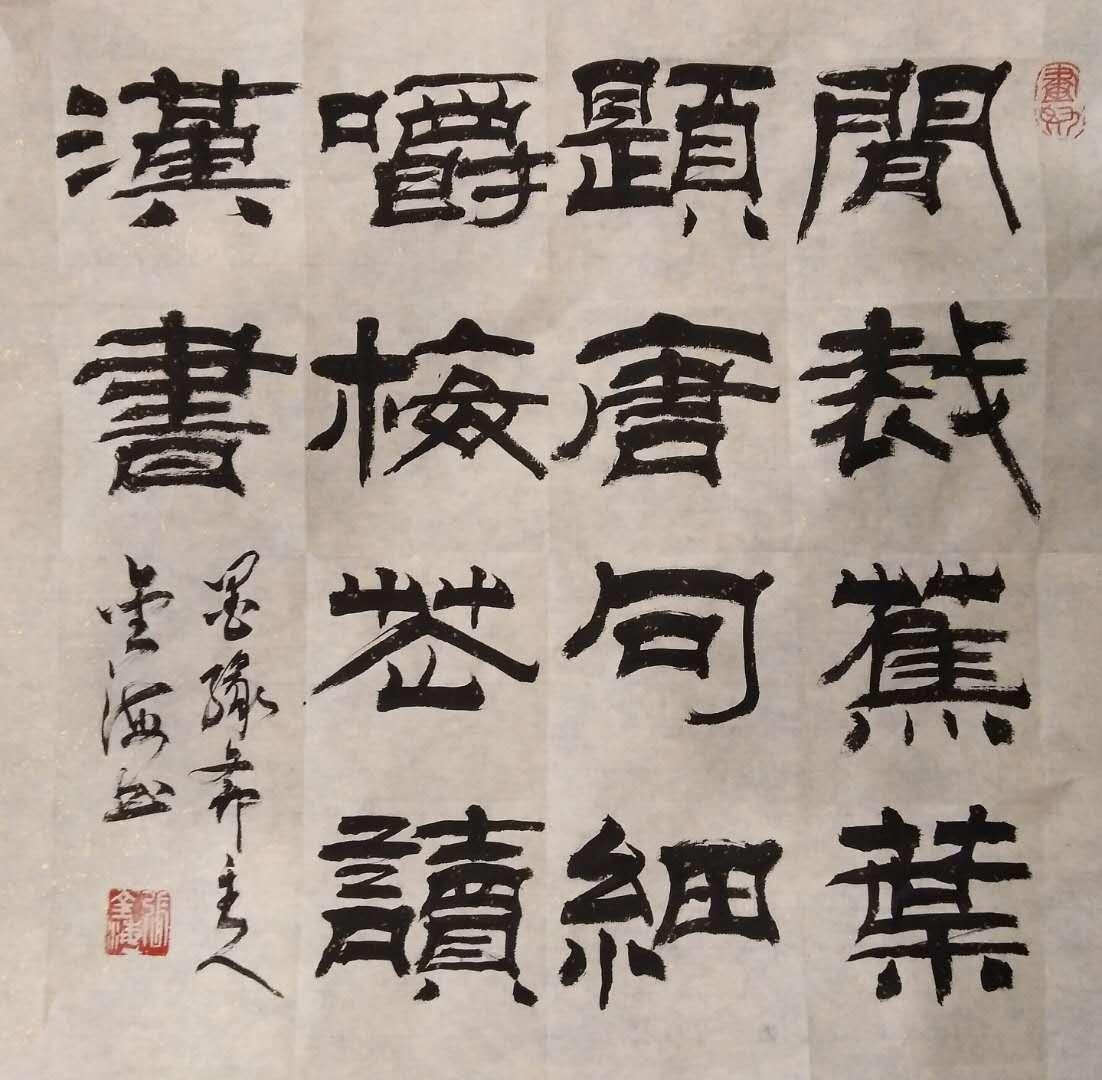 閒裁蕉葉
題唐句細
嚼梅花讀
漢書
墨緣齋主人
金海書
張金海